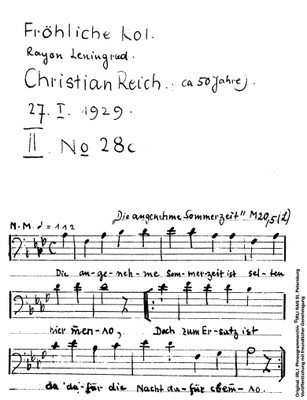 Fröhliche Kol.
Rayon Leningrad.
Christian Reich. (ca 50 Jahre).
27. I. 1929.
II No 28c
"Die angenehme Sommerzeit" M20,5(2)
M.M. ♩ = 112
Die an-ge-neh-me Som-mer-zeit ist sel-ten
hier Doch zum Er-satz ist
da da-für die Nacht da-für
Original: IRLI Phonogrammarchiv RAN St. Petersburg
Veröffentlichung mit freundlicher Genehmigung